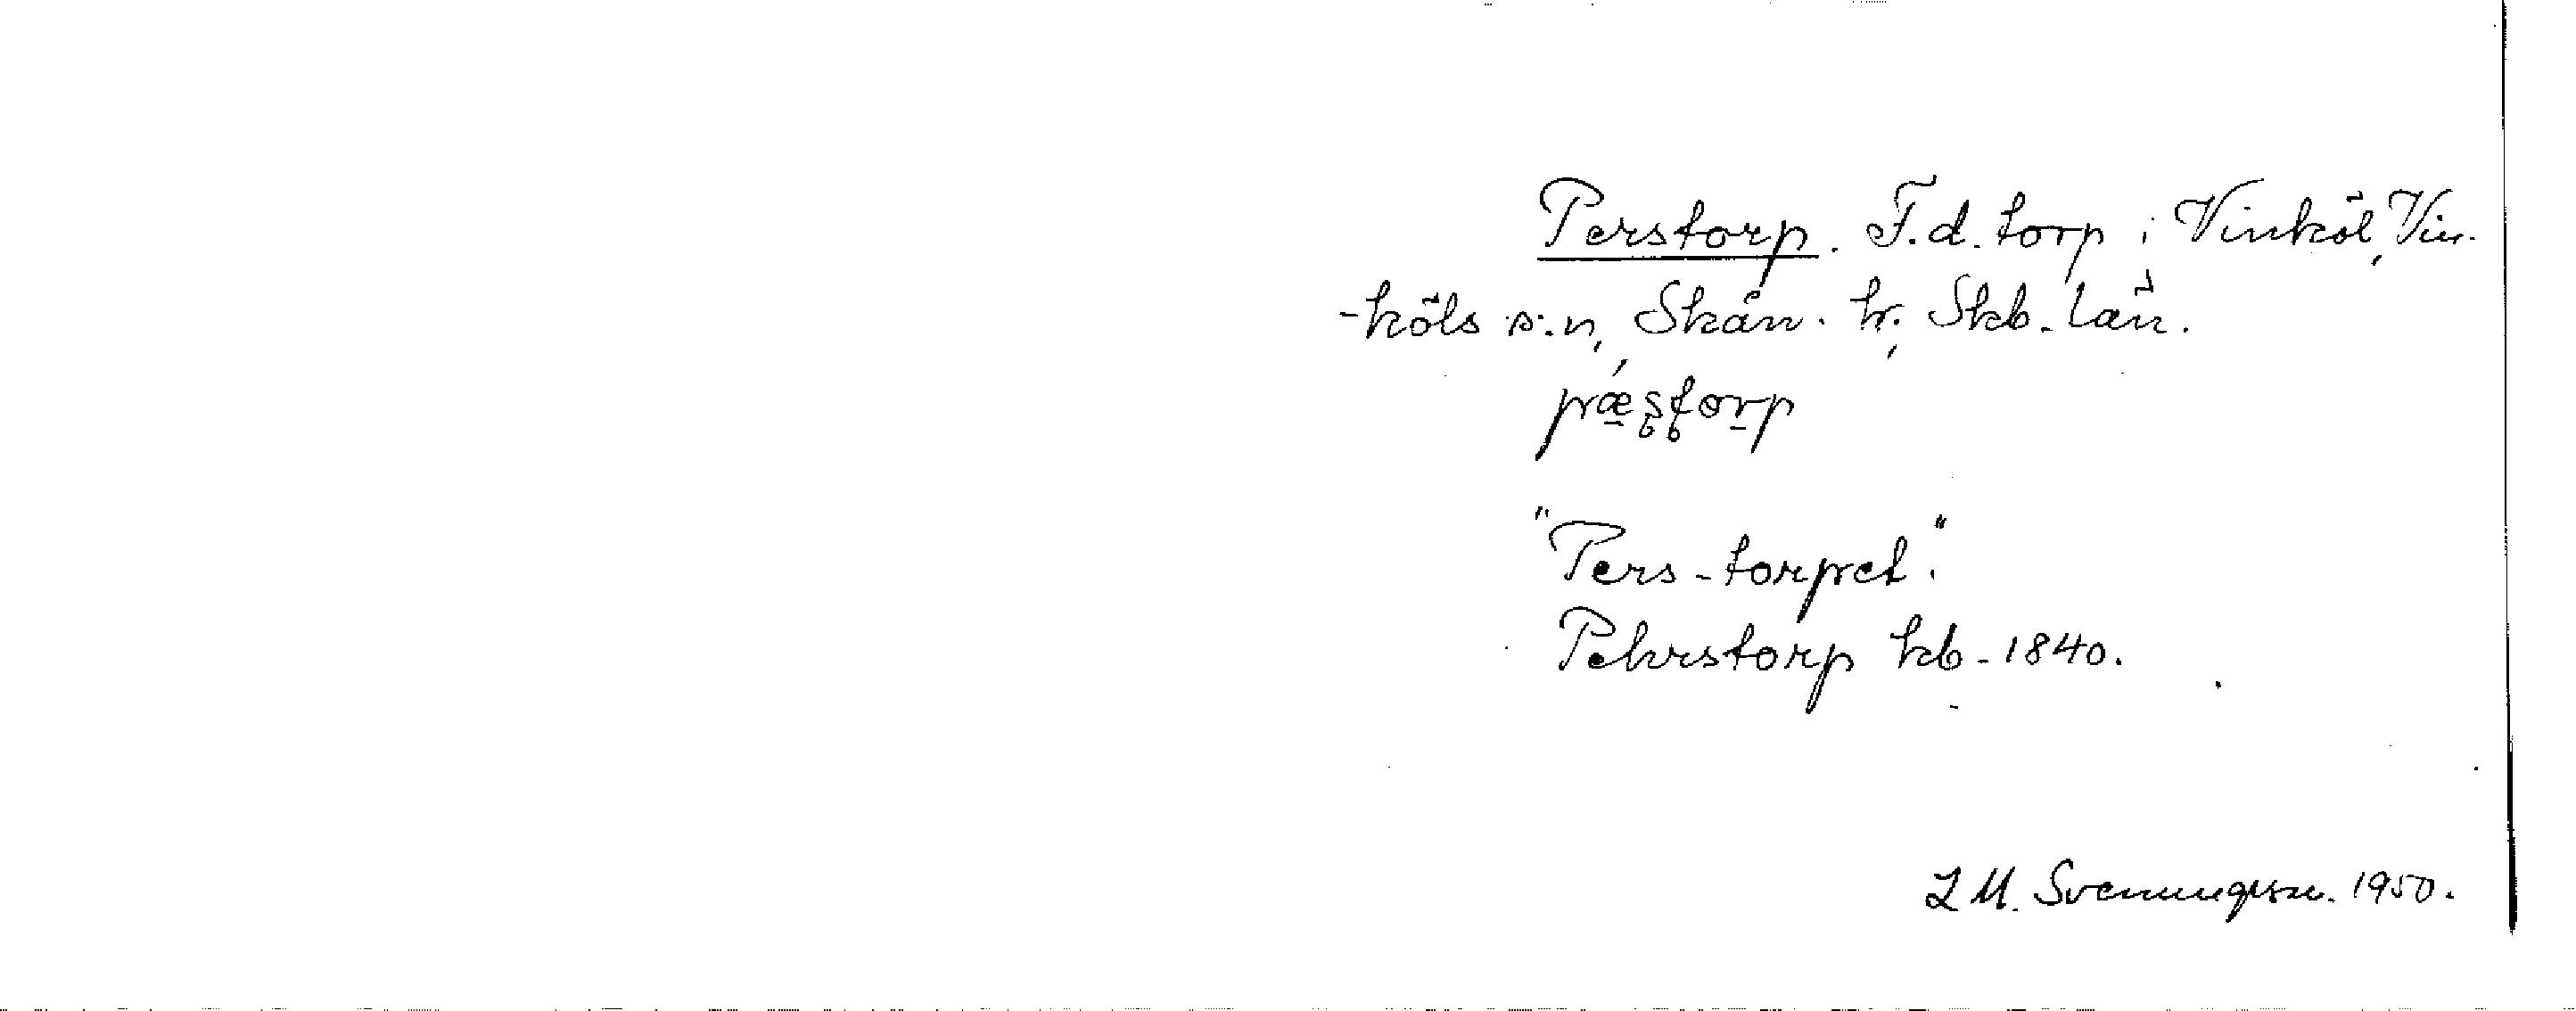 Perstorp. F.d. torp i Vinköl, Vin-
-köls s:n, Skån. hr. Skb. län.
pæ̱ʂʈo̱rp
"Pers-torpet".
Pehrstorp kb. 1840.
L M. Svenungsson. 1950.